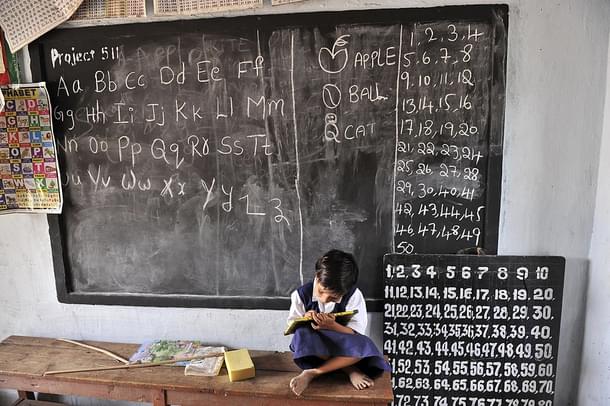 Project 511
Aa Bb Cc Dd Ee Ff
Gg Hh Ii Jj Kk Ll Mm
Nn Oo Pp Qq Rr Ss Tt
Uu Vv Ww Xx Yy Zz
APPLE
BALL
CAT
1, 2, 3, 4
5, 6, 7, 8
9, 10, 11, 12
13, 14, 15, 16
17, 18, 19, 20
21, 22, 23, 24
25, 26, 27, 28
29, 30, 40, 41
42, 43, 44, 45
46, 47, 48, 49
50
1 2 3 4 5 6 7 8 9 10
11.12.13.14.15.16.17.18.19.20.
21.22.23.24.25.26.27.28.29.30.
31.32.33.34.35.36.37.38.39.40.
41.42.43.44.45.46.47.48.49.50.
51.52.53.54.55.56.57.58.59.60.
61.62.63.64.65.66.67.68.69.70.